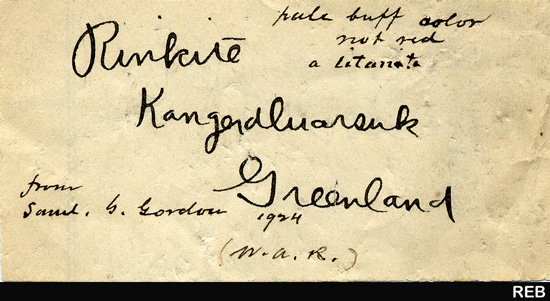 Rinkite
pale buff color
not red
a titanate
Kangerdluarsuk
Greenland
from
Saml. G. Gordon 1924
(W.A.R.)
REB